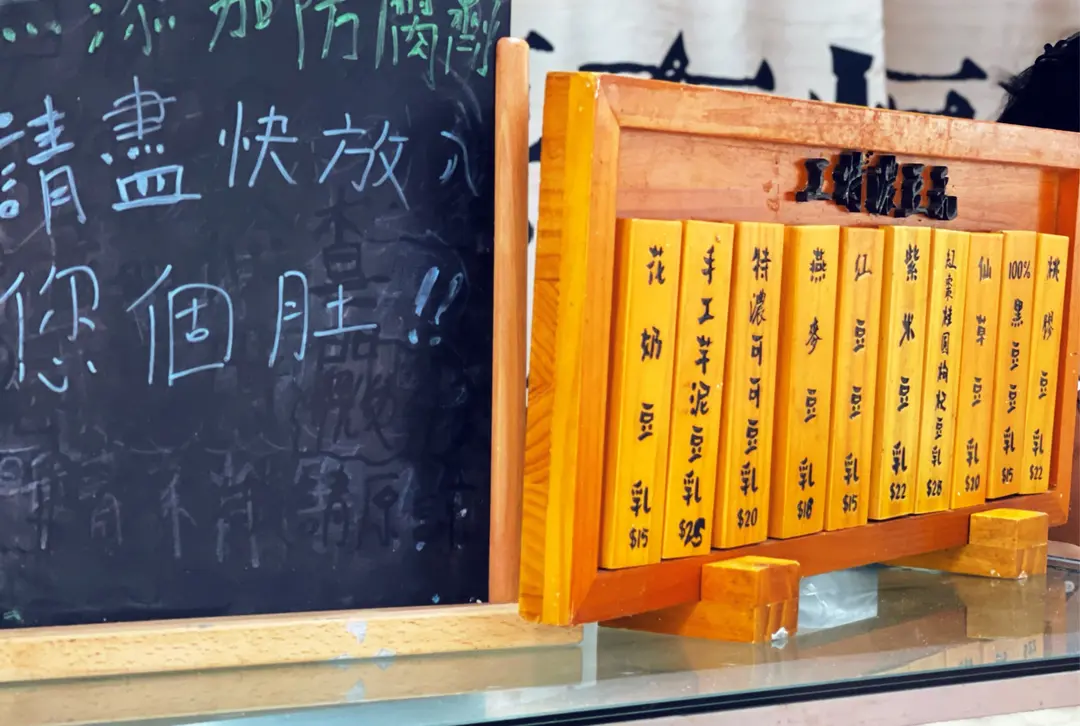 添加防腐劑
請盡快放入
您個肚!!
工特濃豆乳
花奶豆乳 $15
手工芋泥豆乳 $25
特濃可可豆乳 $20
燕麥豆乳 $18
红豆豆乳 $15
紫米豆乳 $22
紅棗桂圓枸杞豆乳 $28
仙草豆乳 $20
100%黑豆豆乳 $15
桃膠豆乳 $22